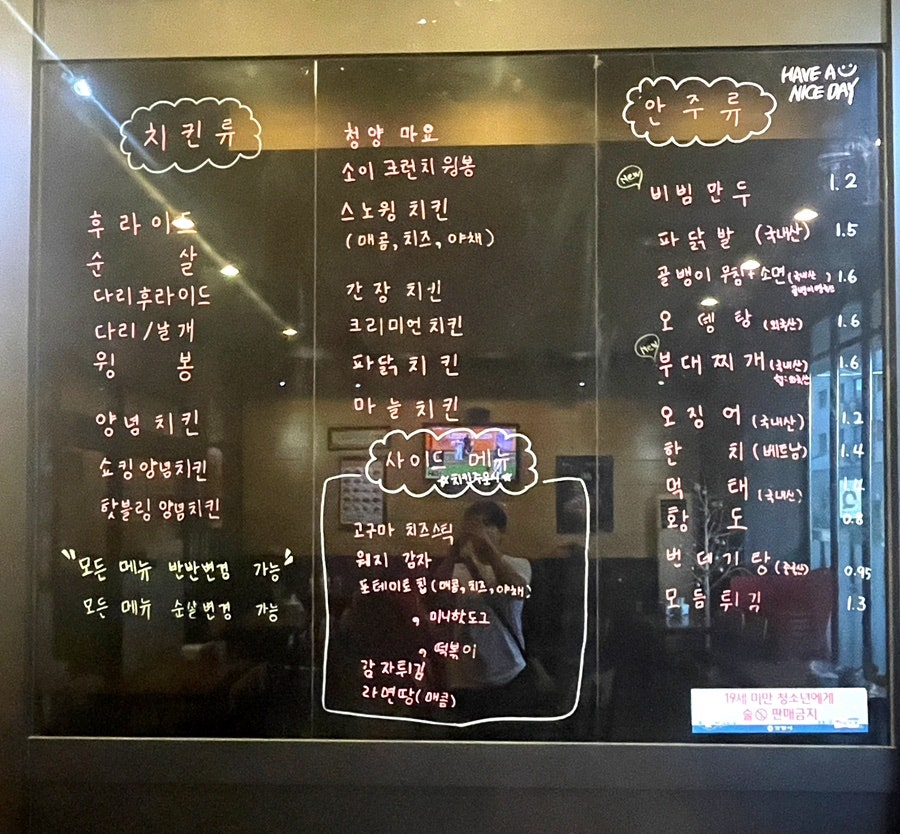 치킨류
후라이드
순 살
다리후라이드
다리/날개
윙 봉
양념치킨
쇼킹양념치킨
핫블링양념치킨
"모든 메뉴 반반변경 가능"
모든 메뉴 순살변경 가능
청양 마요
소이 크런치 윙봉
스노윙 치킨
(매콤, 치즈, 야채)
간장 치킨
크리미언치킨
파닭치킨
마늘치킨
사이드 메뉴
☆치킨주문시☆
고구마 치즈스틱
웨지 감자
포테이토 칩(매콤, 치즈, 야채)
, 미니핫도그
, 떡볶이
감자튀김
라면땅(매콤)
HAVE A
NICE DAY
안주류
New 비빔만두 1.2
파닭발 (국내산) 1.5
골뱅이 무침+소면 (국내산 1.6
오뎅탕 (외국산) 1.6
New 부대찌개 (국내산) 1.6
오징어 (국내산) 1.2
한 치 (베트남) 1.4
먹 태 (국내산) 1.4
황 도 0.8
번데기탕 0.95
모듬튀김 1.3
19세 미만 청소년에게
술 판매금지